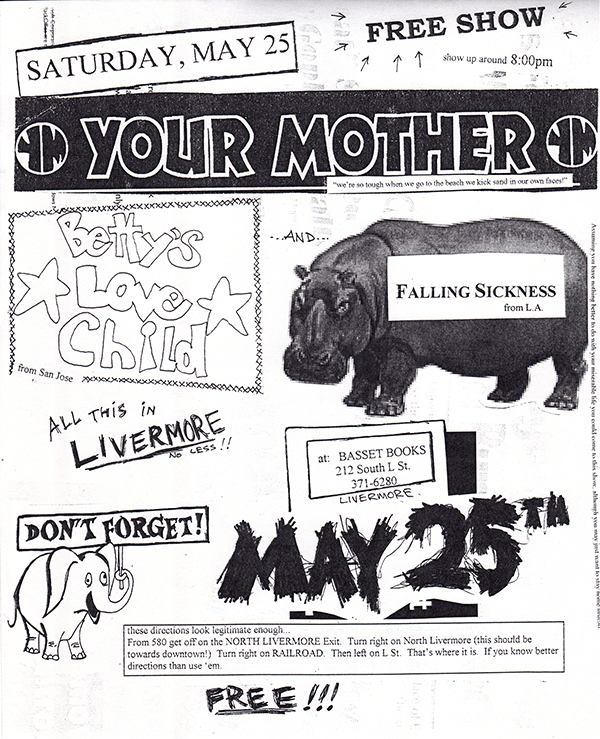 SATURDAY, MAY 25
FREE SHOW
show up around 8:00pm
YM YOUR MOTHER YM
"we're so tough when we go to the beach we kick sand in our own faces!"
Betty's
Love
Child
from San Jose
...AND...
FALLING SICKNESS
from L.A.
Assuming you have nothing better to do with your miserable life you could come to this show, although you may just want to stay home
ALL THIS IN
LIVERMORE
NO LESS!!
at: BASSET BOOKS
212 South L St.
371-6280
LIVERMORE
DON'T FORGET!
MAY 25TH
these directions look legitimate enough...
From 580 get off on the NORTH LIVERMORE Exit. Turn right on North Livermore (this should be
towards downtown!) Turn right on RAILROAD. Then left on L St. That's where it is. If you know better
directions than use 'em.
FREE!!!